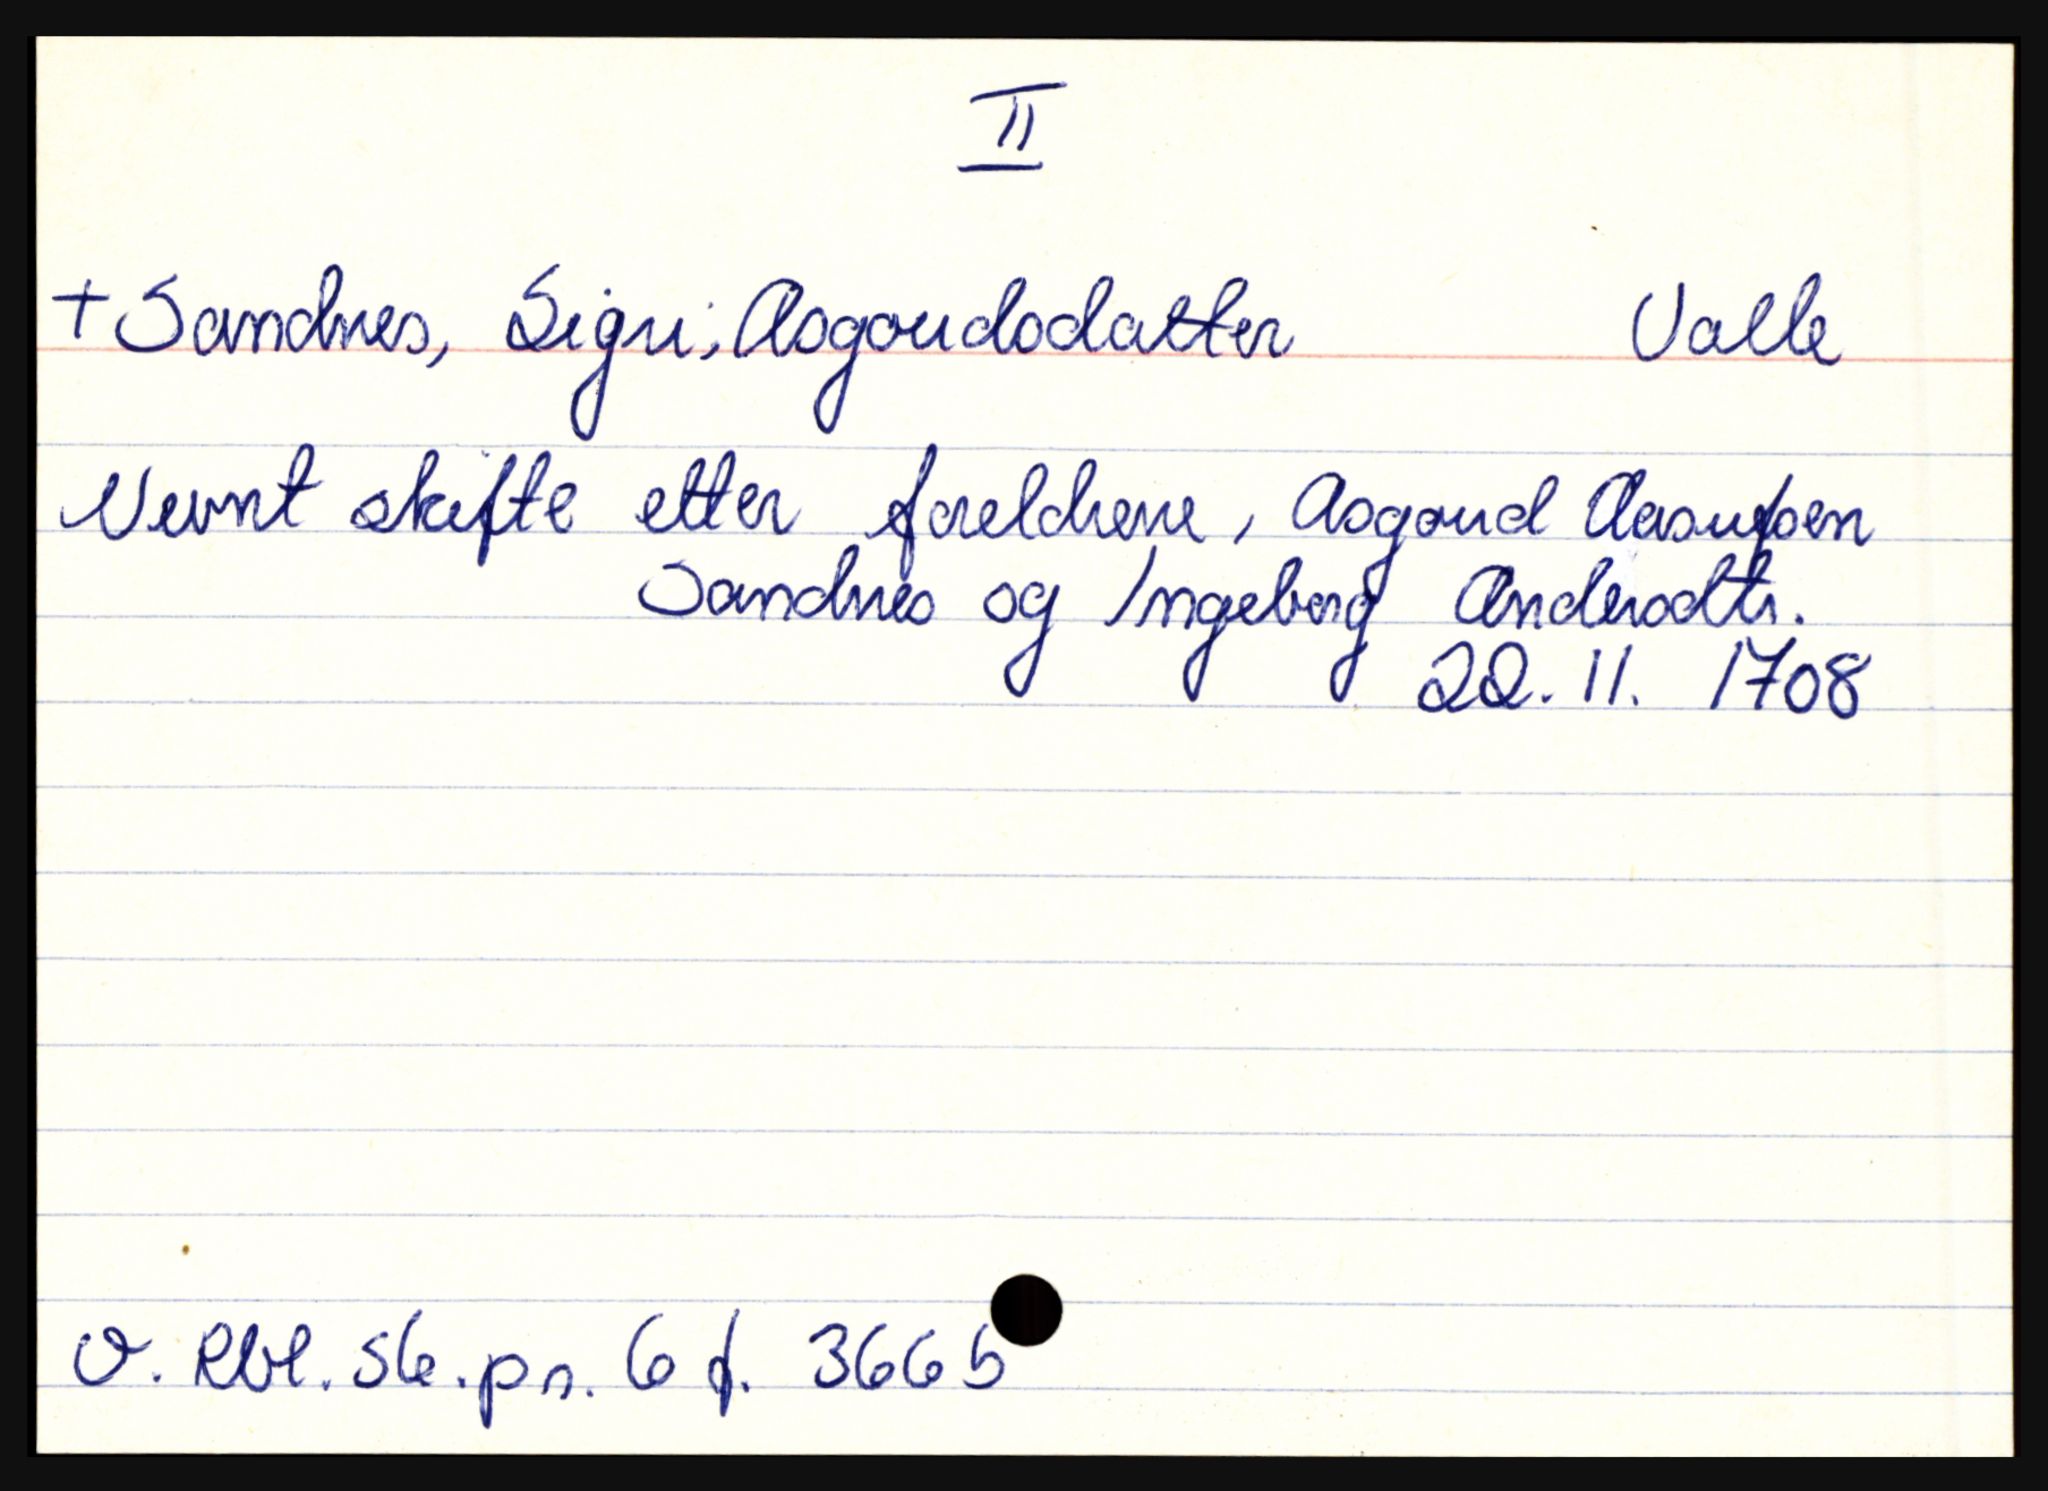 II
+ Sandnes, Sigri; Asgoudsdatter Valle
Nevnt skifte etter foreldrene, Asgoud Aasufsen
Sandnes og Ingeborg Andersdtr.
22. 11. 1708
V. Rbl. sk.pr. 6 f. 366b